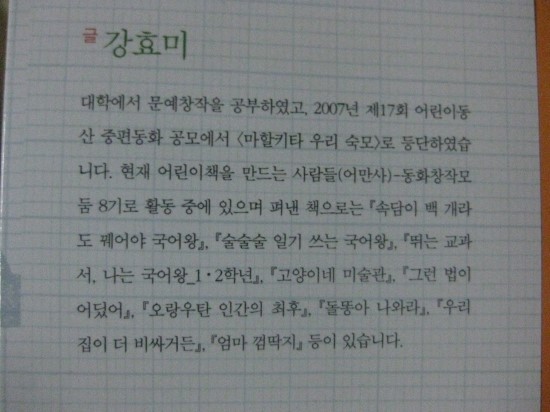 글 강효미
대학에서 문예창작을 공부하였고, 2007년 제17회 어린이동
산 중편동화 공모에서 〈마할키타 우리 숙모〉로 등단하였습
니다. 현재 어린이책을 만드는 사람들(어만사)-동화창작모
둠 8기로 활동 중에 있으며 펴낸 책으로는 『속담이 백 개라
도 꿰어야 국어왕』, 『술술술 일기 쓰는 국어왕』, 『뛰는 교과
서, 나는 국어왕_1·2학년』, 『고양이네 미술관』, 『그런 법이
어딨어』, 『오랑우탄 인간의 최후』, 『돌똥아 나와라』, 『우리
집이 더 비싸거든』, 『엄마 껌딱지』 등이 있습니다.